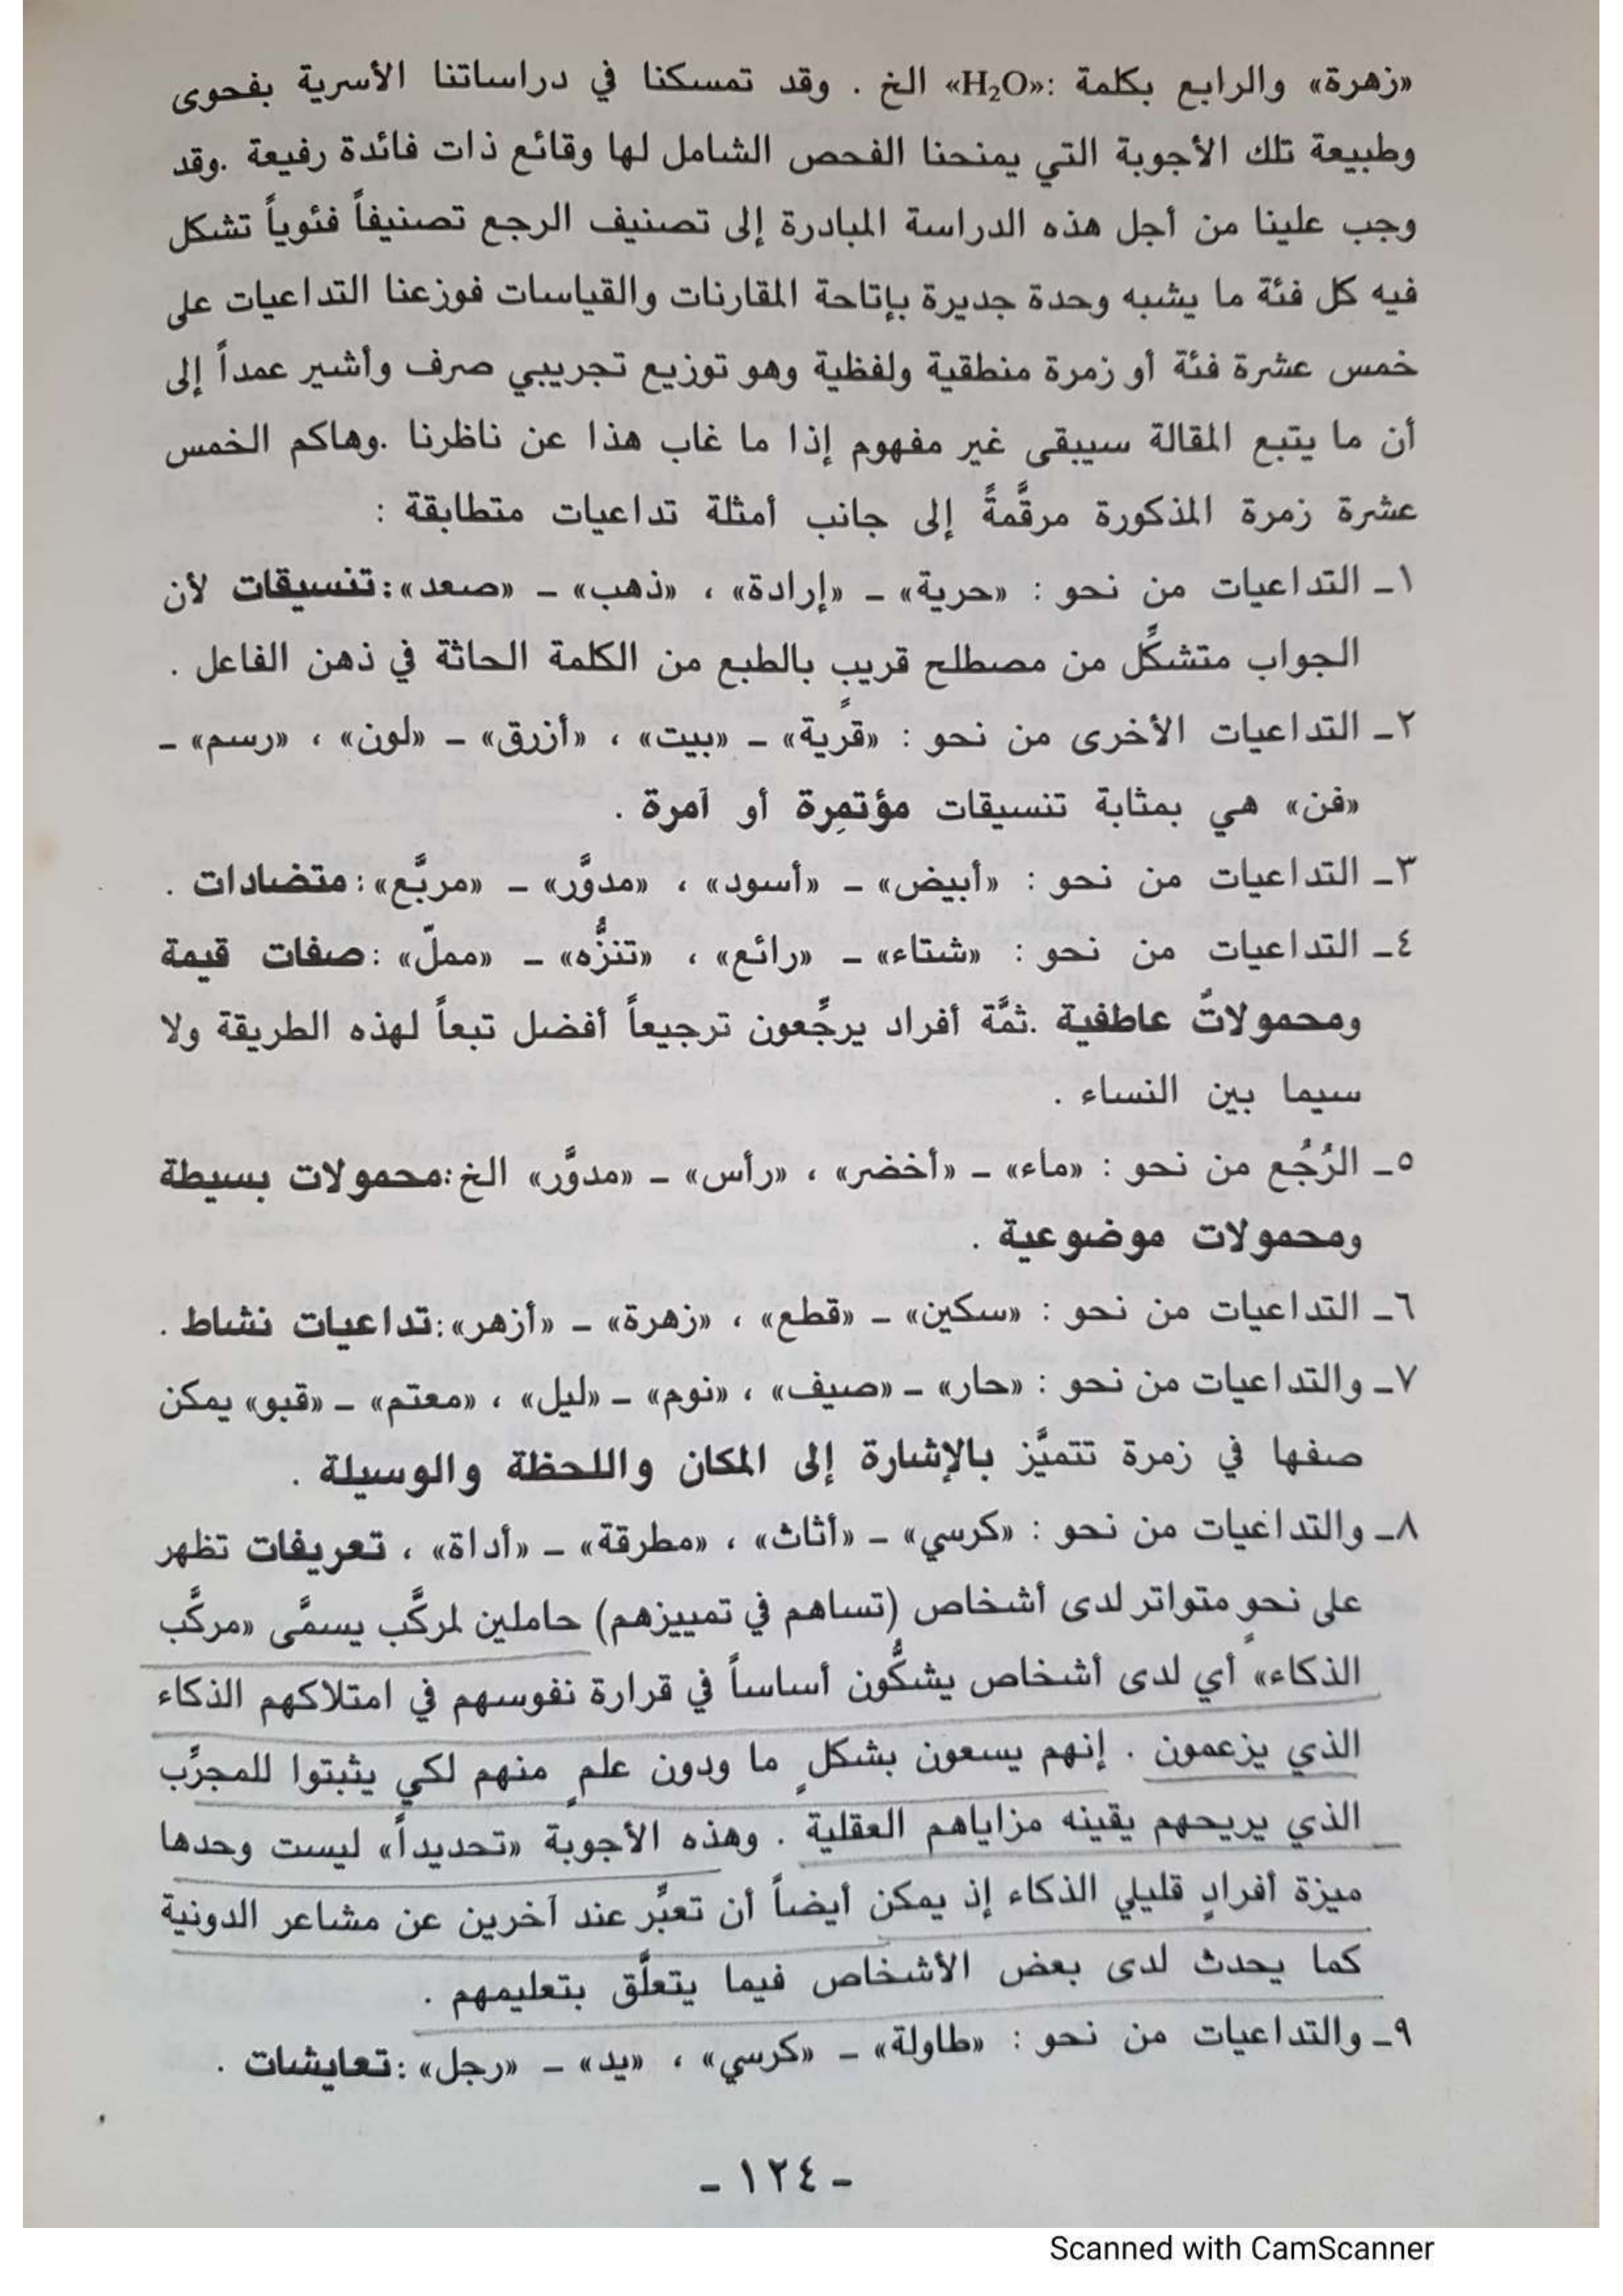 «زهرة» والرابع بكلمة :«H₂O» الخ . وقد تمسكنا في دراساتنا الأسرية بفحوى
وطبيعة تلك الأجوبة التي يمنحنا الفحص الشامل لها وقائع ذات فائدة رفيعة .وقد
وجب علينا من أجل هذه الدراسة المبادرة إلى تصنيف الرجع تصنيفاً فئوياً تشكل
فيه كل فئة ما يشبه وحدة جديرة بإتاحة المقارنات والقياسات فوزعنا التداعيات على
خمس عشرة فئة أو زمرة منطقية ولفظية وهو توزيع تجريبي صرف وأشير عمداً إلى
أن ما يتبع المقالة سيبقى غير مفهوم إذا ما غاب هذا عن ناظرنا .وهاكم الخمس
عشرة زمرة المذكورة مرقَّمةً إلى جانب أمثلة تداعيات متطابقة :
١ـ التداعيات من نحو : «حرية» ـ «إرادة» ، «ذهب» ـ «صعد»:تنسيقات لأن
الجواب متشكِّل من مصطلح قريبٍ بالطبع من الكلمة الحاثة في ذهن الفاعل .
٢ـ التداعيات الأخرى من نحو : «قرية» ـ «بيت» ، «أزرق» ـ «لون» ، «رسم» ـ
«فن» هي بمثابة تنسيقات مؤتمِرة أو آمرة .
٣ـ التداعيات من نحو : «أبيض» ـ «أسود» ، «مدوَّر» ـ «مربَّع»:متضادات .
٤ـ التداعيات من نحو : «شتاء» ـ «رائع» ، «تنزُّه» ـ «مملّ» :صفات قيمة
ومحمولاتُ عاطفية .ثمَّة أفراد يرجِّعون ترجيعاً أفضل تبعاً لهذه الطريقة ولا
سيما بين النساء .
٥ـ الرُجُع من نحو : «ماء» ـ «أخضر» ، «رأس» ـ «مدوَّر» الخ:محمولات بسيطة
ومحمولات موضوعية .
٦ـ التداعيات من نحو : «سكين» ـ «قطع» ، «زهرة» ـ «أزهر»:تداعيات نشاط .
٧ـ والتداعيات من نحو : «حار» ـ «صيف» ، «نوم» ـ «ليل» ، «معتم» ـ «قبو» يمكن
صفها في زمرة تتميَّز بالإشارة إلى المكان واللحظة والوسيلة .
٨ـ والتداغيات من نحو : «كرسي» ـ «أثاث» ، «مطرقة» ـ «أداة» ، تعريفات تظهر
على نحوٍ متواتر لدى أشخاص (تساهم في تمييزهم) حاملين لمركَّب يسمَّى «مركَّب
الذكاء» أي لدى أشخاص يشكُّون أساساً في قرارة نفوسهم في امتلاكهم الذكاء
الذي يزعمون . إنهم يسعون بشكلٍ ما ودون علمٍ منهم لكي يثبتوا للمجرِّب
الذي يريحهم يقينه مزاياهم العقلية . وهذه الأجوبة «تحديداً» ليست وحدها
ميزة أفرادٍ قليلي الذكاء إذ يمكن أيضاً أن تعبِّر عند آخرين عن مشاعر الدونية
كما يحدث لدى بعض الأشخاص فيما يتعلَّق بتعليمهم .
٩ـ والتداعيات من نحو : «طاولة» ـ «كرسي» ، «يد» ـ «رجل» :تعايشات .
ـ ١٢٤ ـ
Scanned with CamScanner